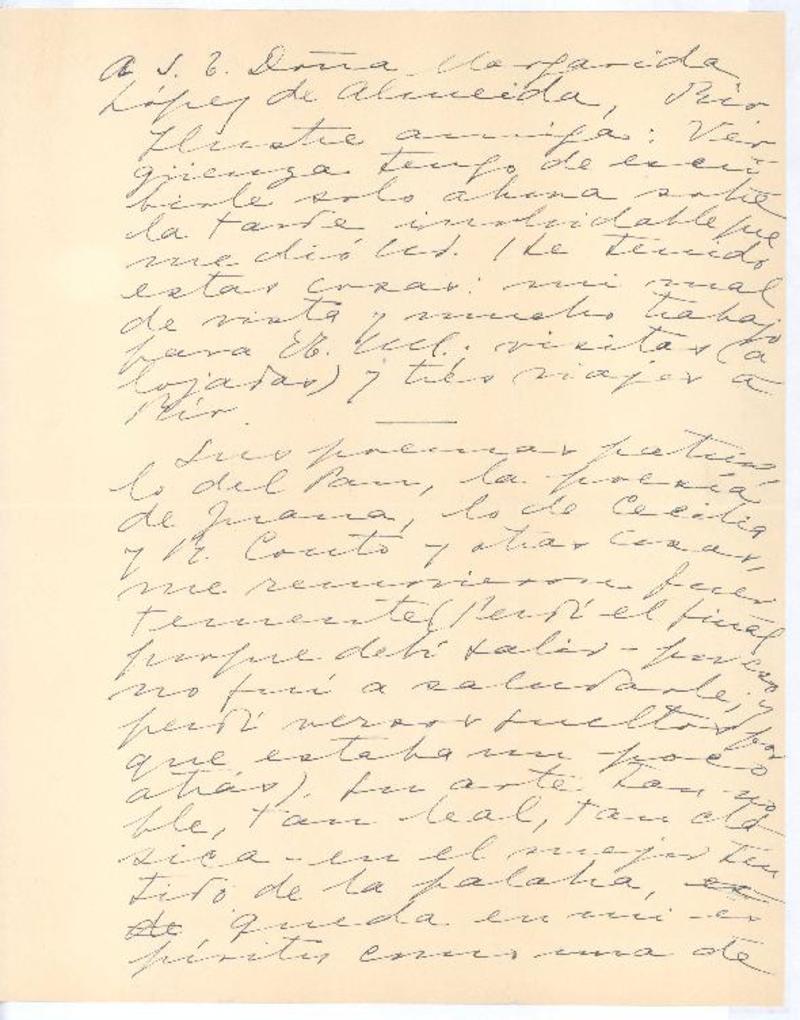 A S. E. Doña Margarida
López de Almeida, Río
Ilustre amiga: Ver-
güenza tengo de escri
birle solo ahora sobre
la tarde inolvidable que
me dió Ud. He tenido
estas cosas: mi mal
de vista y mucho trabajo
para visitas (a
lojadas) y tres viajes a
Río.
Sus poemas patrios,
lo del Pan, la poesía
de Juana, lo de Cecilia
y R. Couto y otras cosas,
me removieron fuer
temente (Perdí el final
porque debí salir - por eso
no fuí a saludarle; y
perdí versos sueltos por
que estaba un poco
atrás). Su arte tan no
ble, tan leal, tan clá
sica - en el mejor sen
tido de la palabra,
queda en mi es
píritu como una de